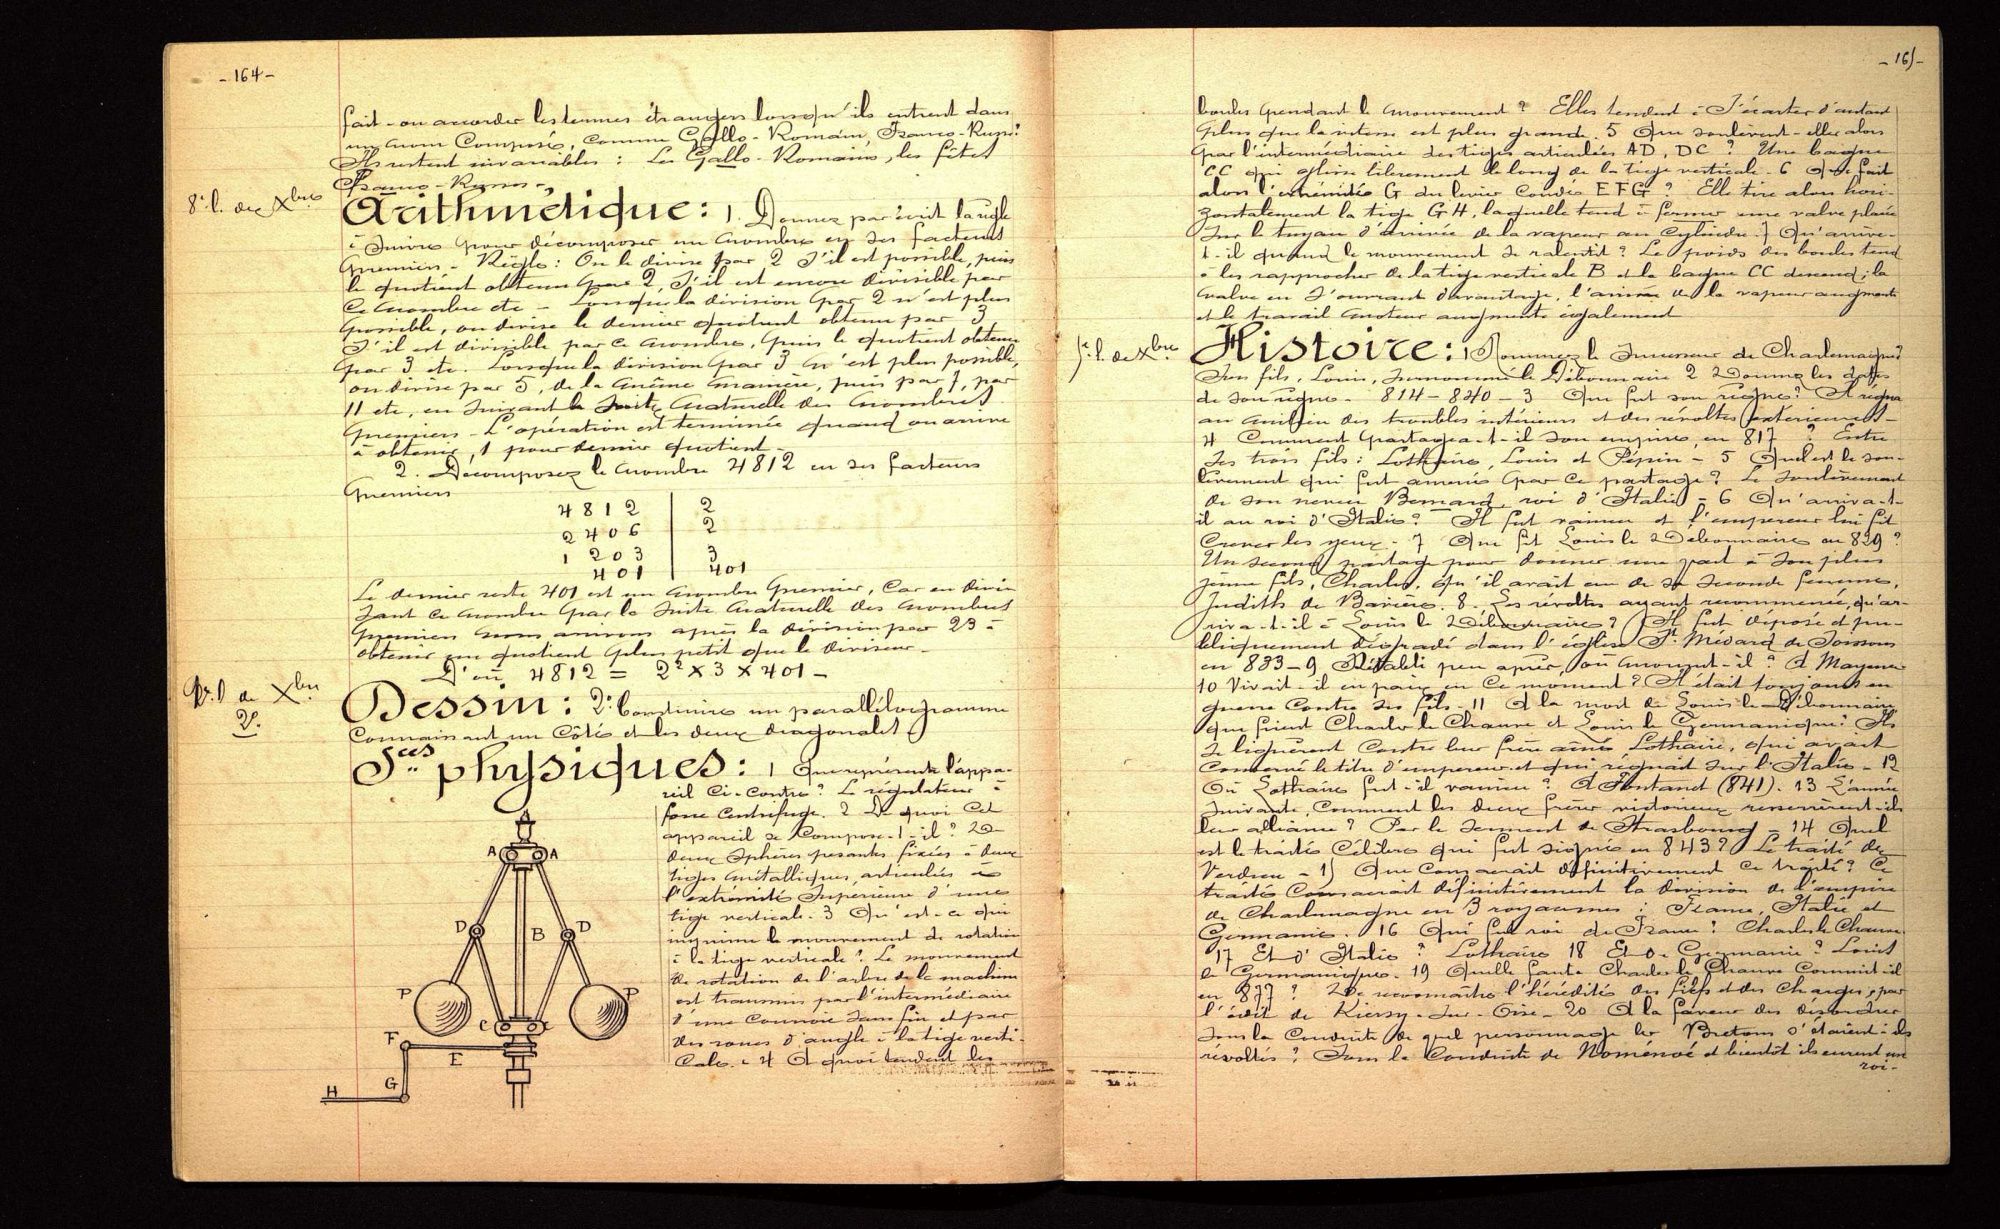 - 164 -
fait-on accorder les termes étrangers lorsqu'ils entrent dans
un nom composé, comme Gallo-Romain, Franco-Russe?
Ils restent invariables : Les Gallo-Romains, les fêtes
Franco-Russes -
8e l. de Xbre
Arithmétique : 1. Donnez par écrit la règle
à suivre pour décomposer un nombre en ses facteurs
premiers - Règle : On le divise par 2 s'il est possible, puis
le quotient obtenu par 2, s'il est encore divisible par
ce nombre etc - Lorsque la division par 2 n'est plus
possible, on divise le dernier quotient obtenu par 3
s'il est divisible par ce nombre, puis le quotient obtenu
par 3 etc. Lorsque la division par 3 n'est plus possible,
on divise par 5, de la même manière, puis par 7, par
11 etc, en suivant la suite naturelle des nombres
premiers - L'opération est terminée quand on arrive
à obtenir 1 pour dernier quotient -
2. Décomposez le nombre 4812 en ses facteurs
premiers
4812 | 2
2406 | 2
1203 | 3
401 | 401
Le dernier reste 401 est un nombre premier, car en divi-
sant ce nombre par la suite naturelle des nombres
premiers nous arrivons après la division par 23 à
obtenir un quotient plus petit que le diviseur -
D'où 4812 = 2² × 3 × 401 -
l de Xbre
2e.
Dessin : 2° Construire un parallélogramme
connaissant un côté et les deux diagonales
Sces physiques : 1 Que représente l'appa-
reil ci-contre? Le régulateur à
force centrifuge. 2 De quoi cet
appareil se compose-t-il? De
deux sphères pesantes fixées à deux
tiges métalliques articulées à
l'extrémité supérieure d'une
tige verticale. 3 Qu'est-ce qui
imprime le mouvement de rotation
à la tige verticale? Le mouvement
de rotation de l'arbre de la machine
est transmis par l'intermédiaire
d'une courroie sans fin et par
des roues d'angle à la tige verti-
cale. 4 A quoi tendent les
A A
D B D
P P
C C
F E
G
H
- 165 -
boules pendant le mouvement? Elles tendent à s'écarter d'autant
plus que la vitesse est plus grande. 5 Que soulèvent-elles alors
par l'intermédiaire des tiges articulées AD, DC? Une bague
CC qui glisse librement le long de la tige verticale. 6 Que fait
alors l'extrémité G du levier coudé EFG? Elle tire alors hori-
zontalement la tige GH, laquelle tend à fermer une valve placée
sur le tuyau d'arrivée de la vapeur au cylindre. 7 Qu'arrive-
t-il quand le mouvement se ralentit? Le poids des boules tend
à les rapprocher de la tige verticale B et la bague CC descend; la
valve en s'ouvrant davantage, l'arrivée de la vapeur augmente
et le travail moteur augmente également
l. de Xbre
Histoire : 1 Nommez le successeur de Charlemagne?
Son fils, Louis, surnommé le Débonnaire 2 Donnez les dates
de son règne - 814-840 - 3 Que fut son règne? Il régna
au milieu des troubles intérieurs et des révoltes extérieures -
4 Comment partagea-t-il son empire, en 817? Entre
ses trois fils : Lothaire, Louis et Pépin - 5 Quel est le sou-
lèvement qui fut amené par ce partage? Le soulèvement
de son neveu Bernard, roi d'Italie - 6 Qu'arriva-t-
il au roi d'Italie? Il fut vaincu et l'empereur lui fit
crever les yeux - 7 Que fit Louis le Débonnaire en 829?
Un second partage pour donner une part à son plus
jeune fils, Charles, qu'il avait eu de sa seconde femme,
Judith de Bavière. 8. Les révoltes ayant recommencé, qu'ar-
riva-t-il à Louis le Débonnaire? Il fut déposé et pu-
bliquement dégradé dans l'église St Médard de Soissons
en 833 - 9 Rétabli peu après, où mourut-il? A Mayence
10 Vivait-il en paix en ce moment? Il était toujours en
guerre contre ses fils - 11 A la mort de Louis le Débonnaire
que firent Charles le Chauve et Louis le Germanique? Ils
se liguèrent contre leur frère aîné Lothaire, qui avait
conservé le titre d'empereur et qui régnait sur l'Italie - 12
Où Lothaire fut-il vaincu? A Fontanet (841). 13 L'année
suivante, comment les deux frères victorieux resserrèrent-ils
leur alliance? Par le serment de Strasbourg - 14 Quel
est le traité célèbre qui fut signé en 843? Le traité de
Verdun - 15 Que consacrait définitivement ce traité? Ce
traité consacrait définitivement la division de l'empire
de Charlemagne en 3 royaumes : France, Italie et
Germanie. 16 Qui fut roi de France? Charles le Chauve
17 Et d'Italie? Lothaire 18 Et de Germanie? Louis
le Germanique. 19 Quelle faute Charles le Chauve commit-il
en 877? De reconnaître l'hérédité des fiefs et des charges, par
l'édit de Kiersy-sur-Oise - 20 A la faveur des désordres
sous la conduite de quel personnage les Bretons s'étaient-ils
révoltés? Sous la conduite de Noménoé et bientôt ils eurent un
roi -